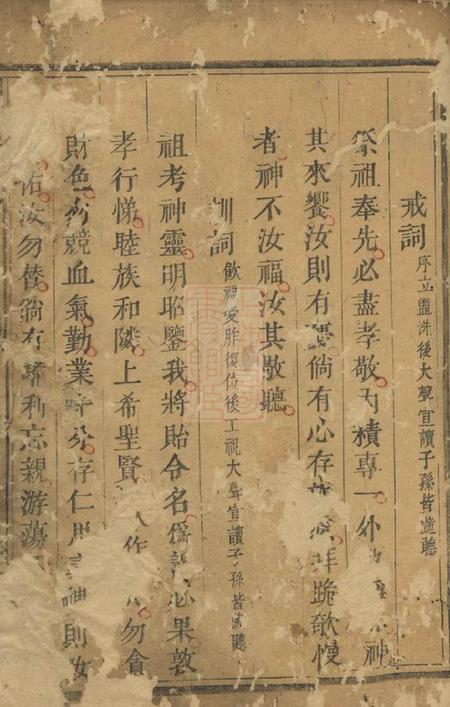 戒詞 序立盥洗後大聲宣讀子孫皆跪聽
祭祖奉先必盡孝敬內積專一外 神
其來饗汝則有慶倘有心存 拜跪欹慢
者神不汝福汝其敬聽
訓詞 飲福受胙復位後工祝大聲宣讀子孫皆 聽
祖考神靈明昭鑒我將貽令名爲善必果敦
孝行悌睦族和隣上希聖賢 作 勿貪
財色勿競血氣勤業 分存仁 則汝
佑汝勿替倘有 利忘親游蕩